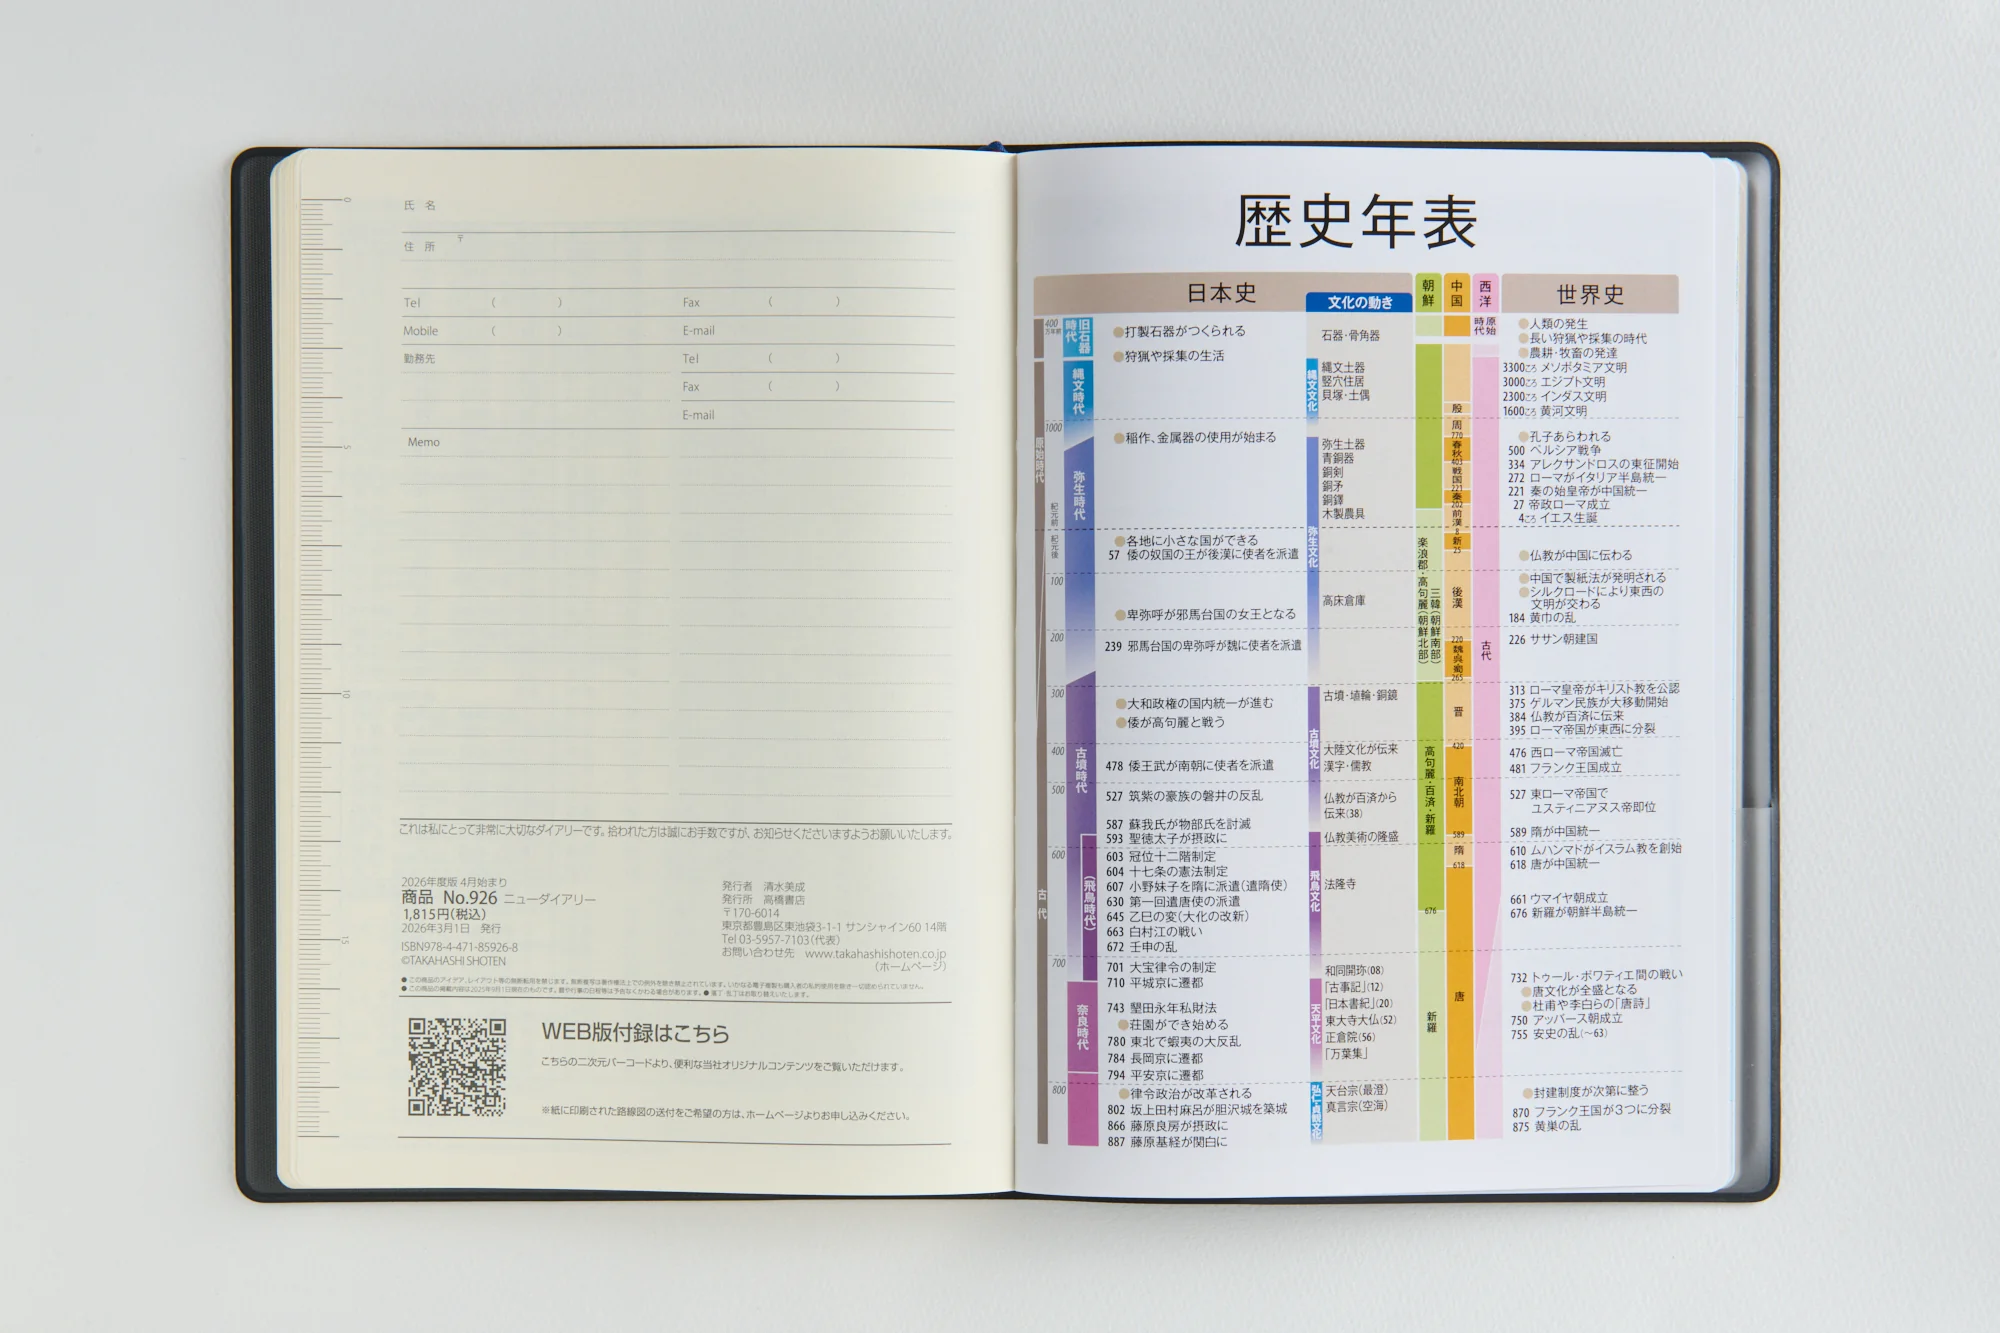 氏 名
住 所 〒
Tel ( ) Fax ( )
Mobile ( ) E-mail
勤務先 Tel ( )
Fax ( )
E-mail
Memo
0
5
10
15
これは私にとって非常に大切なダイアリーです。拾われた方は誠にお手数ですが、お知らせくださいますようお願いいたします。
2026年度版 4月始まり
商品 No.926 ニューダイアリー
1,815円(税込)
2026年3月1日 発行
ISBN978-4-471-85926-8
©TAKAHASHI SHOTEN
発行者 清水美成
発行所 高橋書店
〒170-6014
東京都豊島区東池袋3-1-1 サンシャイン60 14階
Tel 03-5957-7103(代表)
お問い合わせ先 www.takahashishoten.co.jp
(ホームページ)
WEB版付録はこちら
こちらの二次元バーコードより、便利な当社オリジナルコンテンツをご覧いただけます。
※紙に印刷された路線図の送付をご希望の方は、ホームページよりお申し込みください。
歴史年表
日本史
文化の動き
朝鮮
中国
西洋
世界史
400
万年前
1000
紀元前
紀元後
100
200
300
400
500
600
700
800
原始時代
古代
旧石器時代
縄文時代
弥生時代
古墳時代
(飛鳥時代)
奈良時代
●打製石器がつくられる
●狩猟や採集の生活
●稲作、金属器の使用が始まる
●各地に小さな国ができる
57 倭の奴国の王が後漢に使者を派遣
●卑弥呼が邪馬台国の女王となる
239 邪馬台国の卑弥呼が魏に使者を派遣
●大和政権の国内統一が進む
●倭が高句麗と戦う
478 倭王武が南朝に使者を派遣
527 筑紫の豪族の磐井の反乱
587 蘇我氏が物部氏を討滅
593 聖徳太子が摂政に
603 冠位十二階制定
604 十七条の憲法制定
607 小野妹子を隋に派遣(遣隋使)
630 第一回遣唐使の派遣
645 乙巳の変(大化の改新)
663 白村江の戦い
672 壬申の乱
701 大宝律令の制定
710 平城京に遷都
743 墾田永年私財法
●荘園ができ始める
780 東北で蝦夷の大反乱
784 長岡京に遷都
794 平安京に遷都
●律令政治が改革される
802 坂上田村麻呂が胆沢城を築城
866 藤原良房が摂政に
887 藤原基経が関白に
縄文文化
弥生文化
古墳文化
飛鳥文化
天平文化
弘仁・貞観文化
石器・骨角器
縄文土器
竪穴住居
貝塚・土偶
弥生土器
青銅器
銅剣
銅矛
銅鐸
木製農具
高床倉庫
古墳・埴輪・銅鏡
大陸文化が伝来
漢字・儒教
仏教が百済から
伝来(38)
仏教美術の隆盛
法隆寺
和同開珎(08)
「古事記」(12)
「日本書紀」(20)
東大寺大仏(52)
正倉院(56)
「万葉集」
天台宗(最澄)
真言宗(空海)
楽浪郡・高句麗(朝鮮北部)
三韓(朝鮮南部)
高句麗・百済・新羅
676
新羅
殷
周
770
春秋
403
戦国
221
秦
202
前漢
8
新
25
後漢
220
魏・呉・蜀
265
晋
420
南北朝
589
隋
618
唐
原始時代
古代
●人類の発生
●長い狩猟や採集の時代
●農耕・牧畜の発達
3300ころ メソポタミア文明
3000ころ エジプト文明
2300ころ インダス文明
1600ころ 黄河文明
●孔子あらわれる
500 ペルシア戦争
334 アレクサンドロスの東征開始
272 ローマがイタリア半島統一
221 秦の始皇帝が中国統一
27 帝政ローマ成立
4ころ イエス生誕
●仏教が中国に伝わる
●中国で製紙法が発明される
●シルクロードにより東西の
文明が交わる
184 黄巾の乱
226 ササン朝建国
313 ローマ皇帝がキリスト教を公認
375 ゲルマン民族が大移動開始
384 仏教が百済に伝来
395 ローマ帝国が東西に分裂
476 西ローマ帝国滅亡
481 フランク王国成立
527 東ローマ帝国で
ユスティニアヌス帝即位
589 隋が中国統一
610 ムハンマドがイスラム教を創始
618 唐が中国統一
661 ウマイヤ朝成立
676 新羅が朝鮮半島統一
732 トゥール・ポワティエ間の戦い
●唐文化が全盛となる
●杜甫や李白らの「唐詩」
750 アッバース朝成立
755 安史の乱(〜63)
●封建制度が次第に整う
870 フランク王国が3つに分裂
875 黄巣の乱